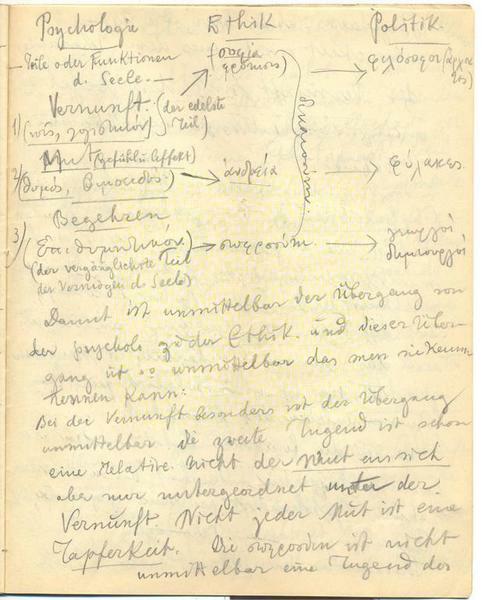 Psychologie Ethik Politik.
— Teile oder Funktionen
d. Seele. —
σοφία
φρόνησις → φιλόσοφοι (ἄρχον
τες)
Vernunft. (der edelste
1) (νοῦς, λογιστικόν) Teil)
Mut (Gefühls-Effekt)
2) (θυμός, θυμοειδές) → ἀνδρεία → φύλακες
δικαιοσύνη
Begehren
3) (Επιθυμητικόν) → σωφροσύνη → γεωργοί
δημιουργοί
(der vergänglichste Teil
der Vermögen d. Seele)
Damit ist unmittelbar der Übergang von
der psycholo zu der Ethik. und dieser Über-
gang ist so unmittelbar das man sie kaum
trennen kann:
Bei der Vernunft besonders ist der Übergang
unmittelbar die zweite Tugend ist schon
eine Relative. Nicht der Mut an sich
aber nur untergeordnet unter der
Vernunft. Nicht jeder Mut ist eine
Tapferkeit. Die σωφροσύνη ist nicht
unmittelbar eine Tugend des